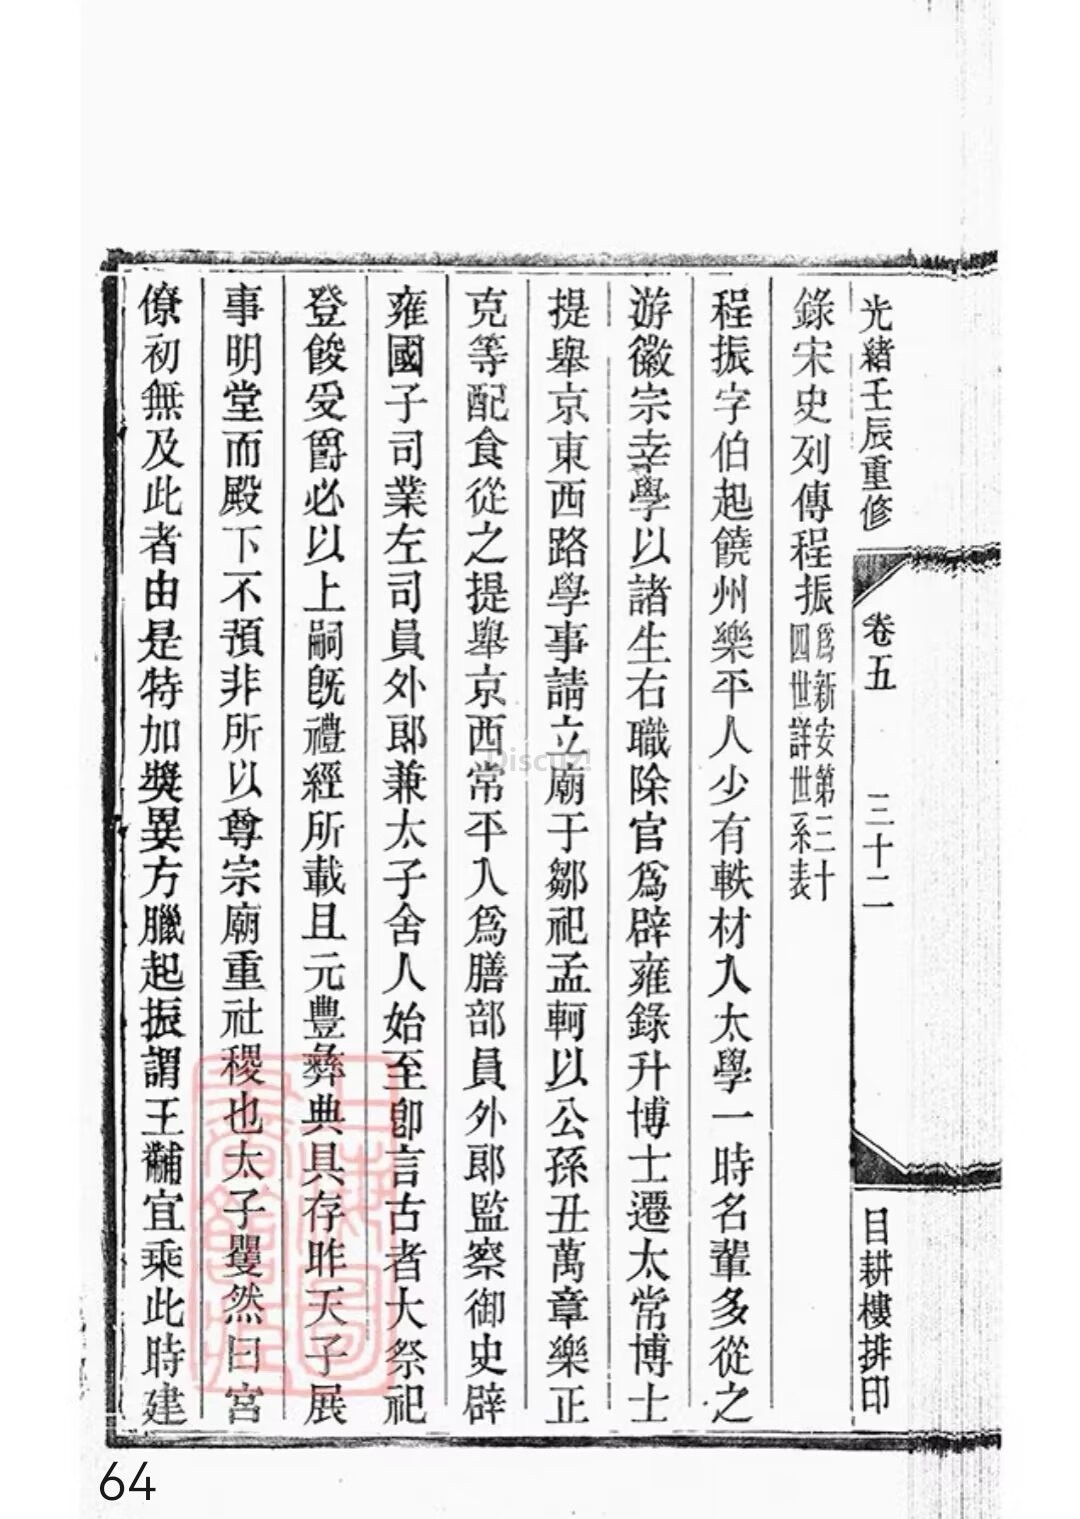 光緒壬辰重修
卷五
三十二
目耕樓排印
錄宋史列傳程振爲新安第三十四世詳世系表
程振字伯起饒州樂平人少有軼材入太學一時名輩多從之
游徽宗幸學以諸生右職除官爲辟雍錄升博士遷太常博士
提舉京東西路學事請立廟于鄒祀孟軻以公孫丑萬章樂正
克等配食從之提舉京西常平入爲膳部員外郎監察御史辟
雍國子司業左司員外郎兼太子舍人始至卽言古者大祭祀
登餕受爵必以上嗣旣禮經所載且元豐彝典具存昨天子展
事明堂而殿下不預非所以尊宗廟重社稷也太子矍然曰宮
僚初無及此者由是特加奬異方臘起振謂王黼宜乘此時建
Discuz!
64